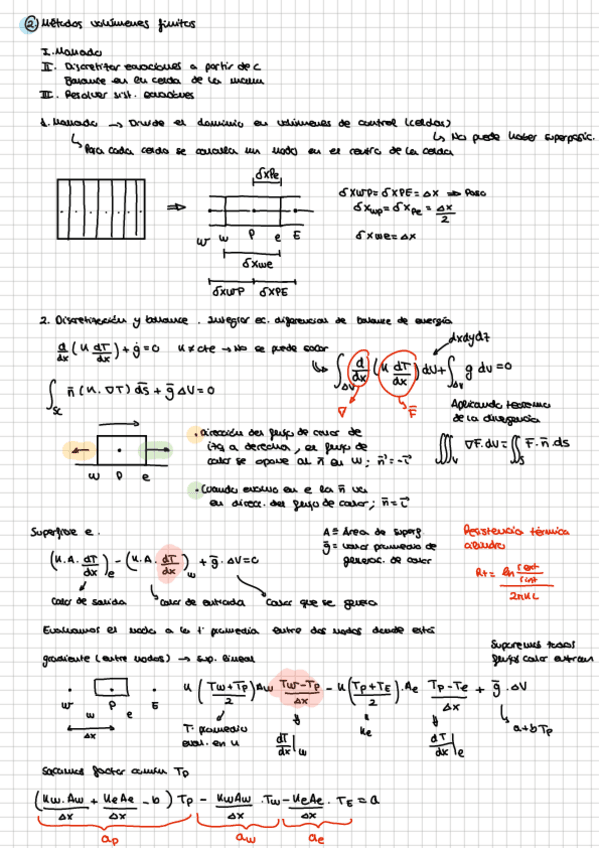 ② Métodos volúmenes finitos
I. Mallado
II. Discretizar ecuaciones a partir de
Balance en la celda de la malla
III. Resolver sist. ecuaciones
1. Mallado → Divide el dominio en volúmenes de control (celdas)
↳ No puede haber superposic.
↳ Para cada celda se un nodo en el centro de la celda
δXPe
δXWP = δXPE = ΔX ⇒ Paso
δXwP = δXPe = ΔX/2
δXwe = ΔX
W w P e E
δXwe
δXWP δXPE
2. Discretización y balance. Integrar ec. diferencial de balance de energía
d/dx (K dT/dx) + ġ = 0 K ≠ cte → No se puede sacar
dxdydz
∫ΔV d/dx (K dT/dx) dV + ∫ΔV g dV = 0
∇ F̄
∫SC n̄ (K. ∇T) ds̄ + ḡ ΔV = 0
Aplicando teorema
de la divergencia
∭V ∇F̄.dV = ∬S F̄. n̄. ds
w P e
• Dirección del flujo de calor de
izq a derecha, el flujo de
calor se opone al n̄ en w; n̄ = -i⃗
• Cuando evalúo en e la n̄ va
en direcc. del flujo de calor; n̄ = i⃗
Superficie e.
(K.A. dT/dx)e - (K.A. dT/dx)w + ḡ.ΔV = 0
Calor de salida Calor de entrada Calor que se genera
A ≡ Área de superf
ḡ = valor promedio de
generac. de calor
Resistencia térmica
cilindro
Rt = ln rext/rint / 2πKL
Evaluamos el nodo a la t° promedia entre dos nodos donde está
gradiente (entre nodos) → Sup. lineal
Suponemos todos
flujos calor entran
W w P e E
ΔX
K (Tw+Tp/2) Aw Tw-Tp/ΔX - K (Tp+TE/2). Ae Tp-Te/ΔX + ḡ.ΔV
T° promedio
eval. en K
dT/dx|w
Ke
dT/dx|e
a+bTp
Sacamos factor común Tp
(Kw.Aw/ΔX + KeAe/ΔX - b) Tp - KwAw/ΔX .Tw - KeAe/ΔX . TE = a
ap aw ae